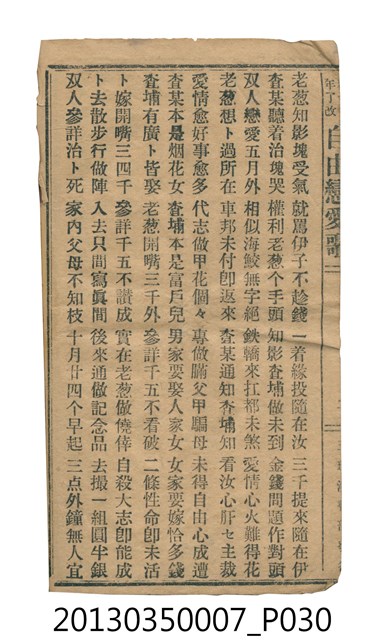 年丁改 自由戀愛歌 一
老葱知影塊受氣 就罵伊子不趁錢 一着緣投隨在汝 三千提來隨在伊
査某聽着治塊哭 權利老葱个手頭 知影査埔做未到 金錢問題作對頭
双人戀愛五月外 相似海鮫無字絕 鉄轎來扛都未煞 愛情心火難得花
老葱想卜過所在 車邦未付卽返來 査某通知査埔知 看汝心肝乜主裁
愛情愈好事愈多 代志做甲花個々 專做瞞父甲騙母 未得自由心成遭
査某本是烟花女 査埔本是富戶兒 男家要娶人家女 女家要嫁恰多錢
査埔有廣卜皆娶 老葱開嘴三千外 參詳千五不看破 二條性命卽未活
卜嫁開嘴三四千 參詳千五不讚成 實在老葱做僥倖 自殺大志卽能成
卜去散步行做陣 入去只間寫眞間 後來通做記念品 去撮一組圓半銀
双人參詳治卜死 家內父母不知枝 十月廿四个早起 三点外鐘無人宜
20130350007_P030